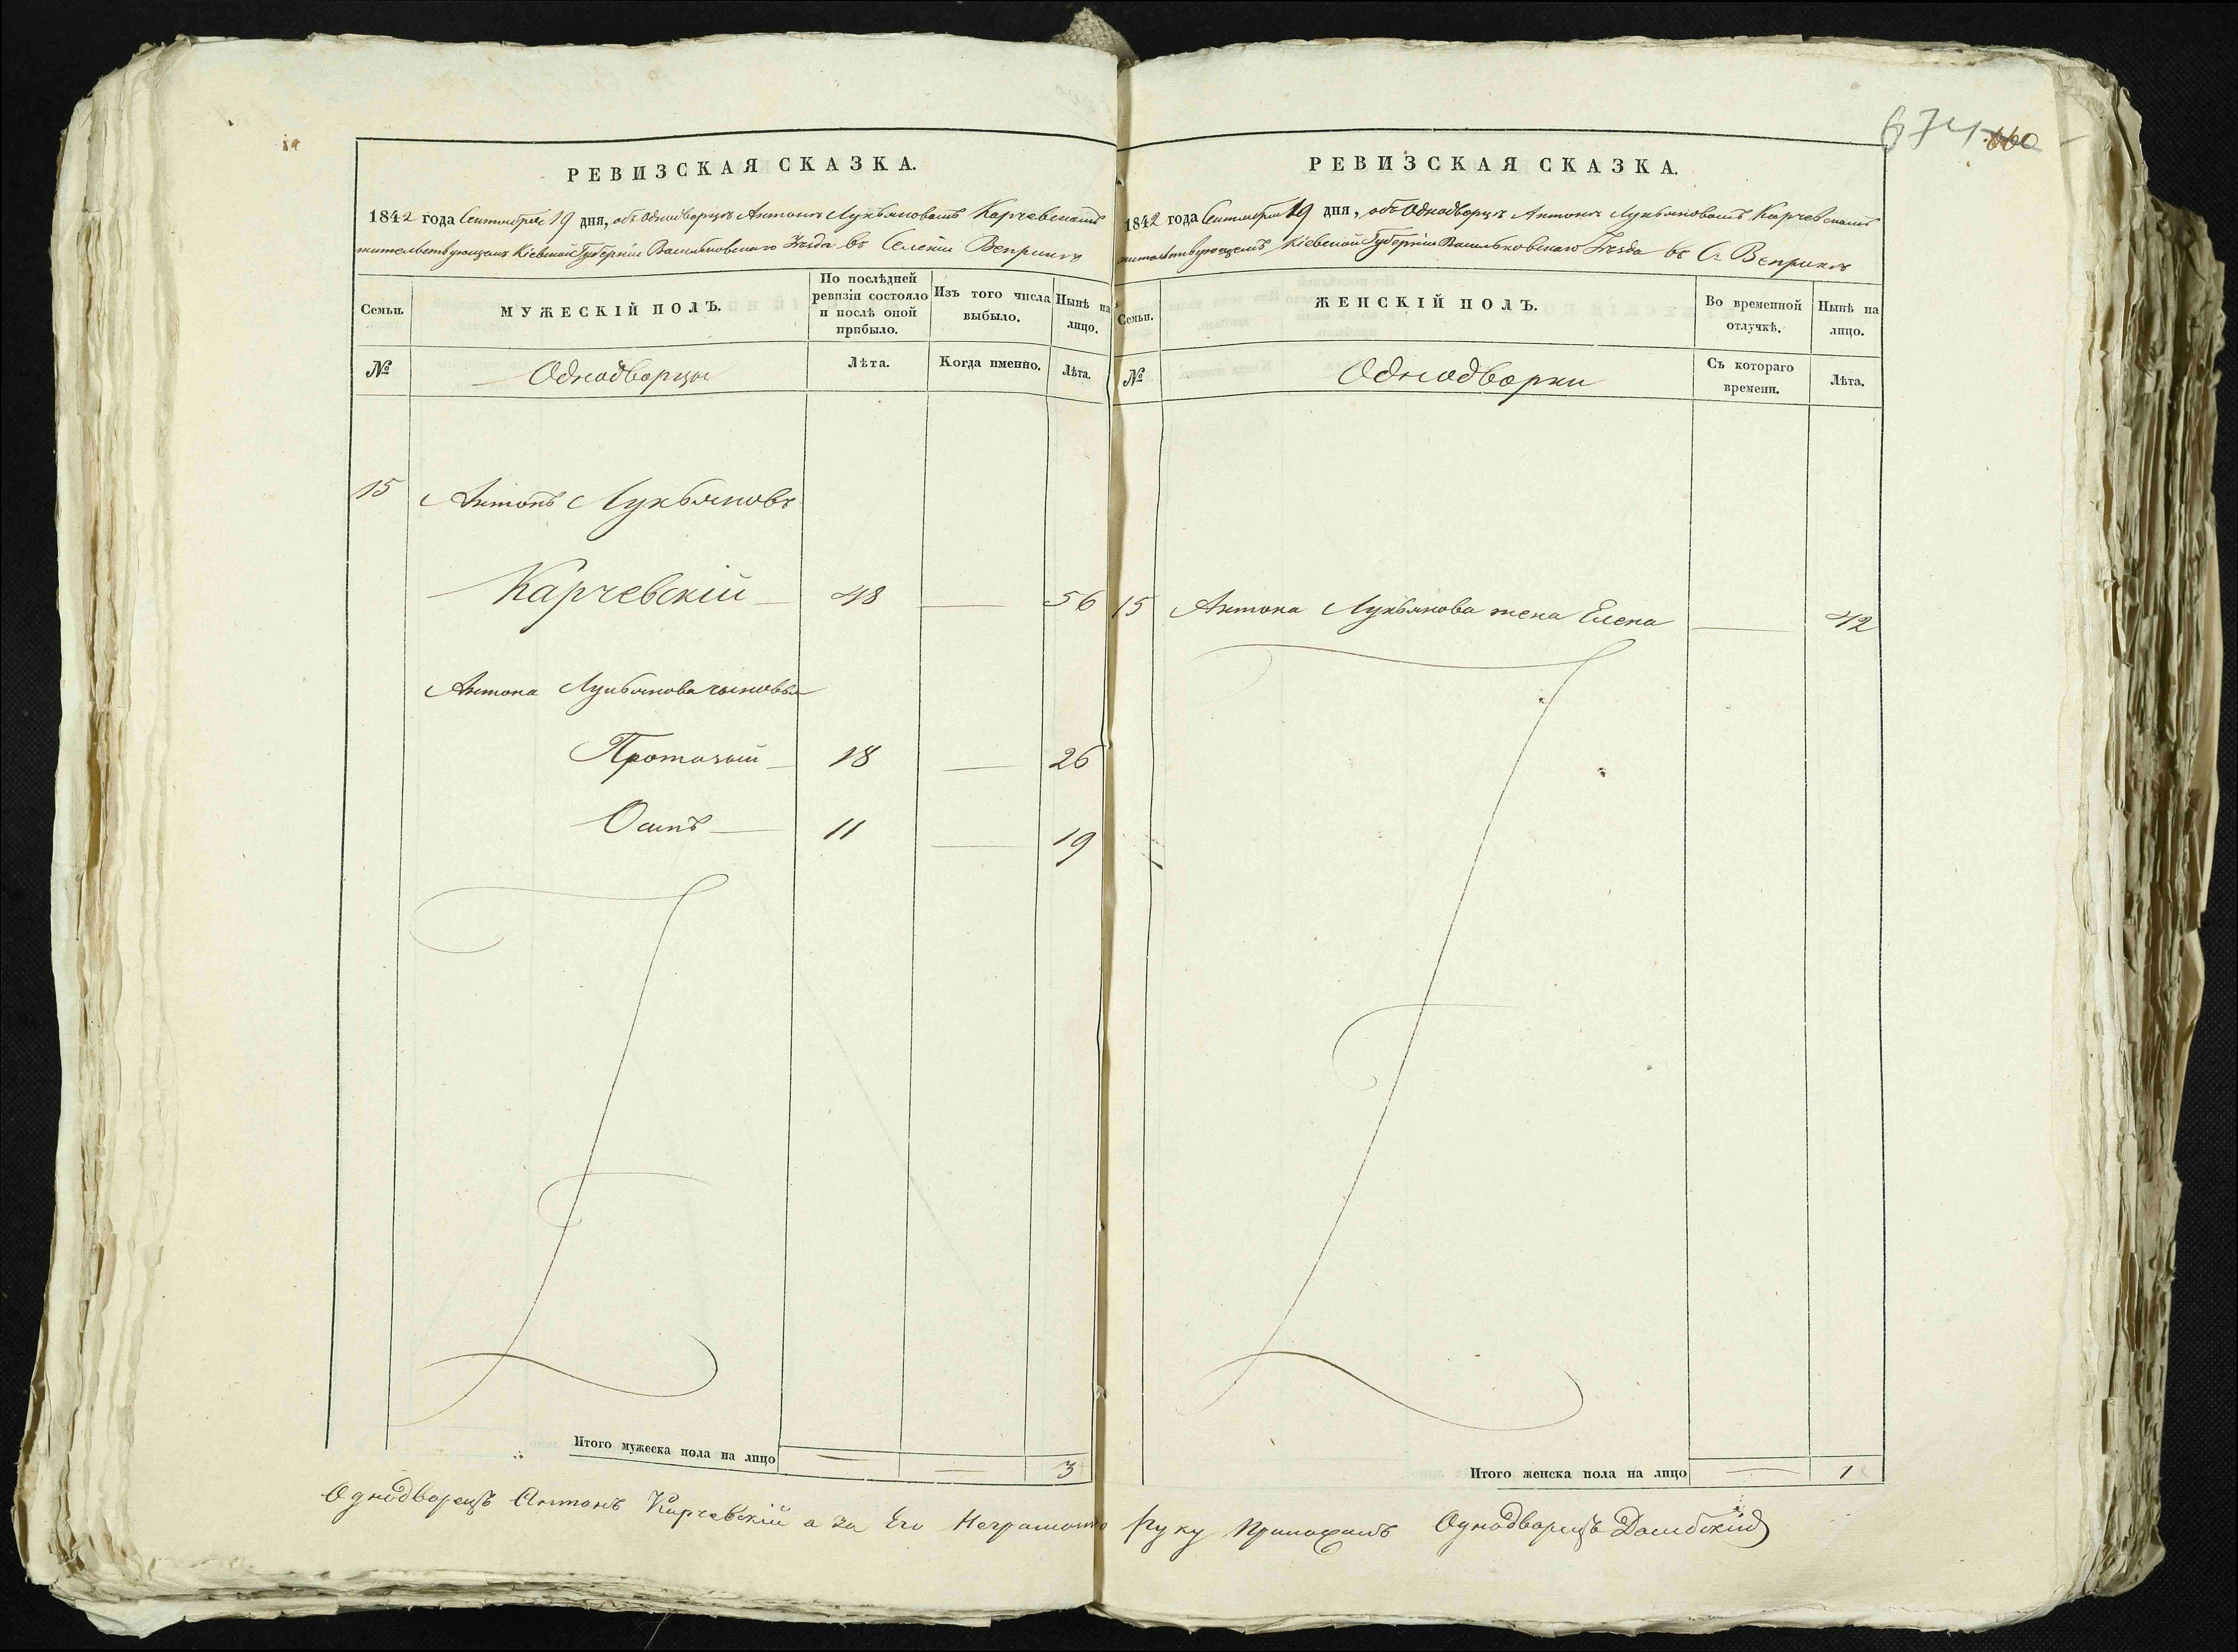 РЕВИЗСКАЯ СКАЗКА.
1842 года Сентября 19 дня, объ Однодворцѣ Антонѣ Лукьяновомъ Карчевскомъ
жительствующемъ Кіевской Губерніи Васильковскаго Уѣзда въ Селеніи Веприкѣ
Семьи.
МУЖЕСКІЙ ПОЛЪ.
По послѣдней ревизіи состояло и послѣ оной прибыло.
Изъ того числа выбыло.
Нынѣ на лицо.
№
Однодворцы
Лѣта.
Когда именно.
Лѣта.
15 Антонъ Лукьяновъ
Карчевскій — 48 — 56
Антона Лукьянова сыновья
Протазій — 18 — 26
Осипъ — 11 — 19
Итого мужеска пола на лицо — — 3
РЕВИЗСКАЯ СКАЗКА.
1842 года Сентября 19 дня, объ Однодворцѣ Антонѣ Лукьяновомъ Карчевскомъ
жительствующемъ Кіевской Губерніи Васильковскаго Уѣзда въ С. Веприкѣ
674 660
Семьи.
ЖЕНСКІЙ ПОЛЪ.
Во временной отлучкѣ.
Нынѣ на лицо.
№
Однодворки
Съ котораго времени.
Лѣта.
15 Антона Лукьянова жена Елена — 42
Итого женска пола на лицо — 1
Однодворецъ Антонъ Карчевскій а за Его Неграмотно руку Приложилъ Однодворецъ